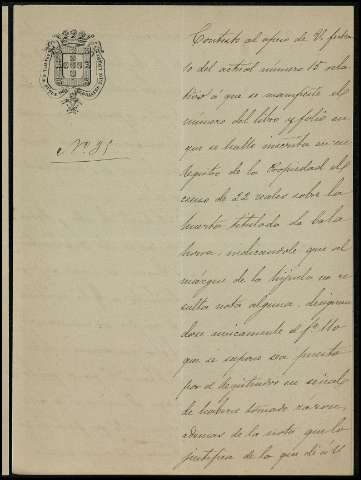 Nº 95
Contesto al oficio de V. fecha
10 del actual número 15 rela
tivo á que se manifieste el
número del libro y folio en
que se halla inscrito en el
registro de la Propiedad el
censo de 22 reales sobre la
huerta titulada la
indicandole que al
márgen de la hijuela no re
sulta nota alguna,
dose unicamente el fº 110
que se supone sea puesto
por el Registrador en señal
de haberse tomado razon,
ademas de la nota que lo
justifica de la que dí á V.